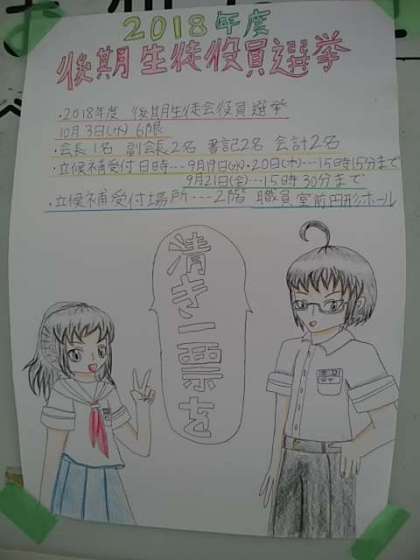 2018年度
後期生徒役員選挙
・2018年度 後期生徒会役員選挙
10月3日(水) 6限
・会長1名 副会長2名 書記2名 会計2名
・立候補受付日時…9月19日(水)・20日(木)…15時15分まで
9月21日(金)…15時30分まで
・立候補受付場所…2階 職員室前円形ホール
清き一票を